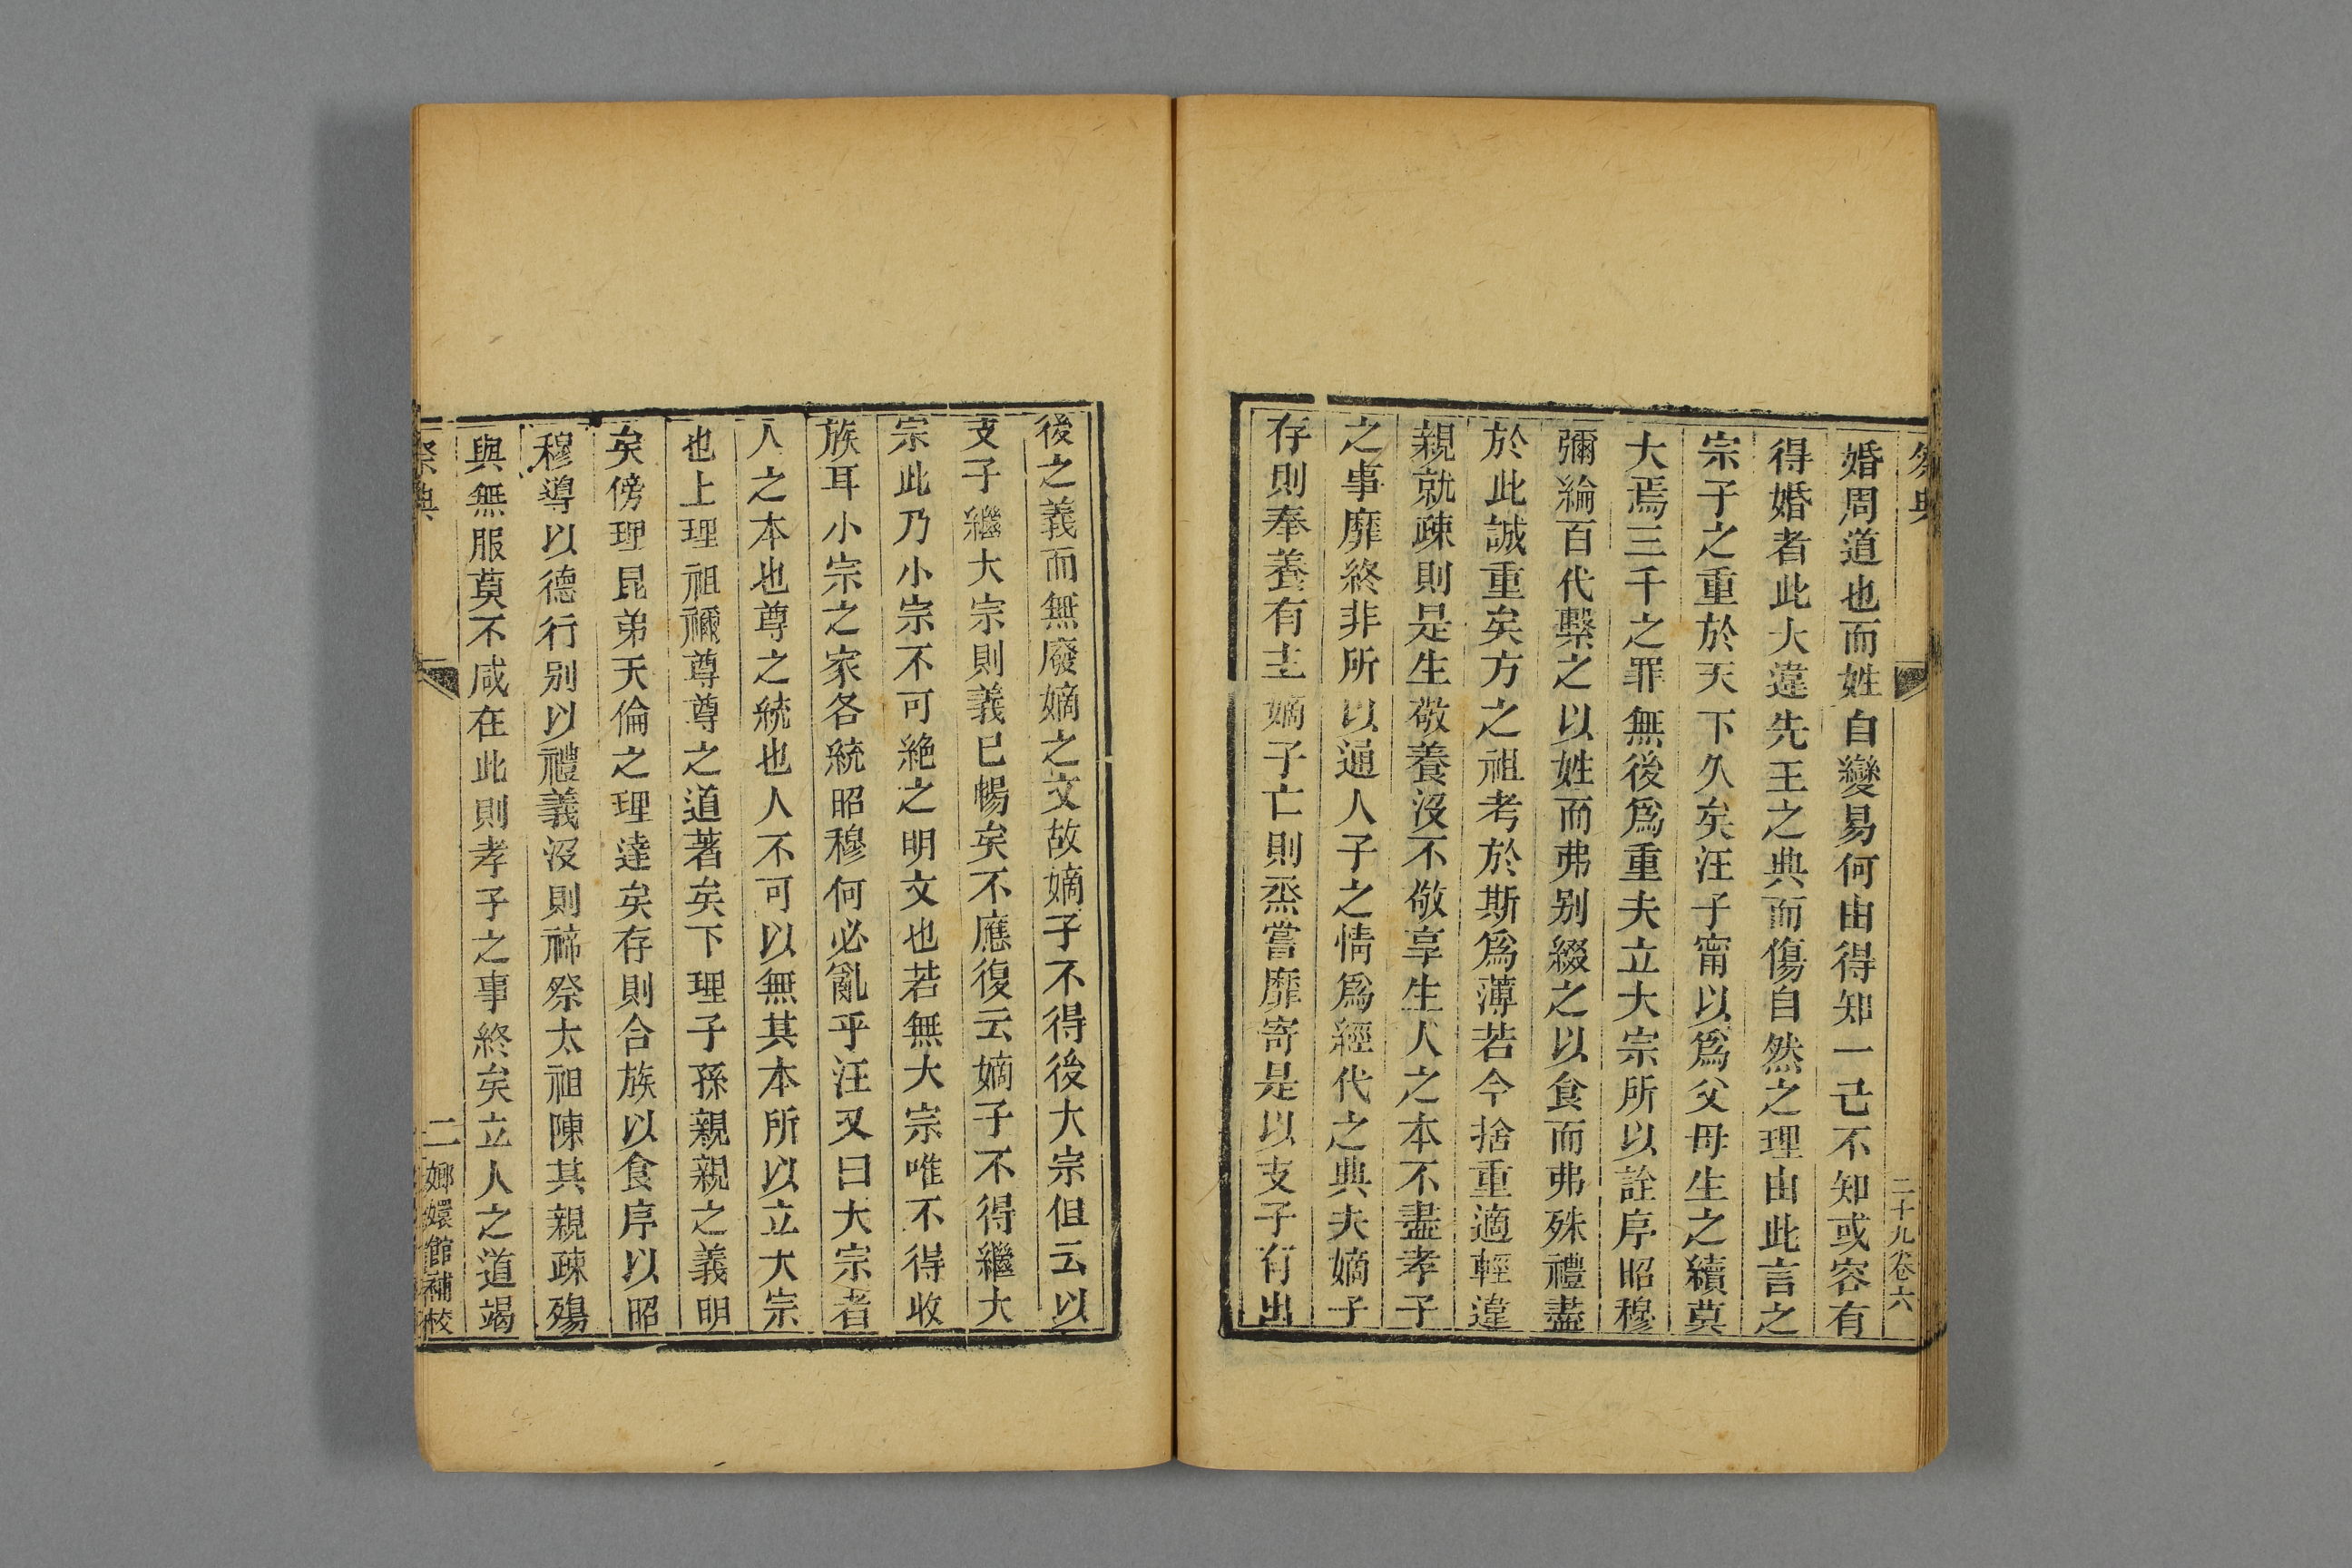 祭典
二十九卷六
婚周道也而姓自變易何由得知一己不知或容有
得婚者此大違先王之典而傷自然之理由此言之
宗子之重於天下久矣汪子甯以爲父母生之續莫
大焉三千之罪無後爲重夫立大宗所以詮序昭穆
彌綸百代繫之以姓而弗别綴之以食而弗殊禮盡
於此誠重矣方之祖考於斯爲薄若令捨重適輕違
親就疎則是生敬養沒不敬享生人之本不盡孝子
之事靡終非所以通人子之情爲經代之典夫嫡子
存則奉養有主嫡子亡則烝嘗靡寄是以支子有出
後之義而無廢嫡之文故嫡子不得後大宗但云以
支子繼大宗則義已暢矣不應復云嫡子不得繼大
宗此乃小宗不可絶之明文也若無大宗唯不得收
族耳小宗之家各統昭穆何必亂乎汪又曰大宗者
人之本也尊之統也人不可以無其本所以立大宗
也上理祖禰尊尊之道著矣下理子孫親親之義明
矣傍理昆弟天倫之理達矣存則合族以食序以昭
穆導以德行别以禮義沒則禘祭太祖陳其親疎殤
與無服莫不咸在此則孝子之事終矣立人之道竭
祭典
二
嫏嬛館補校